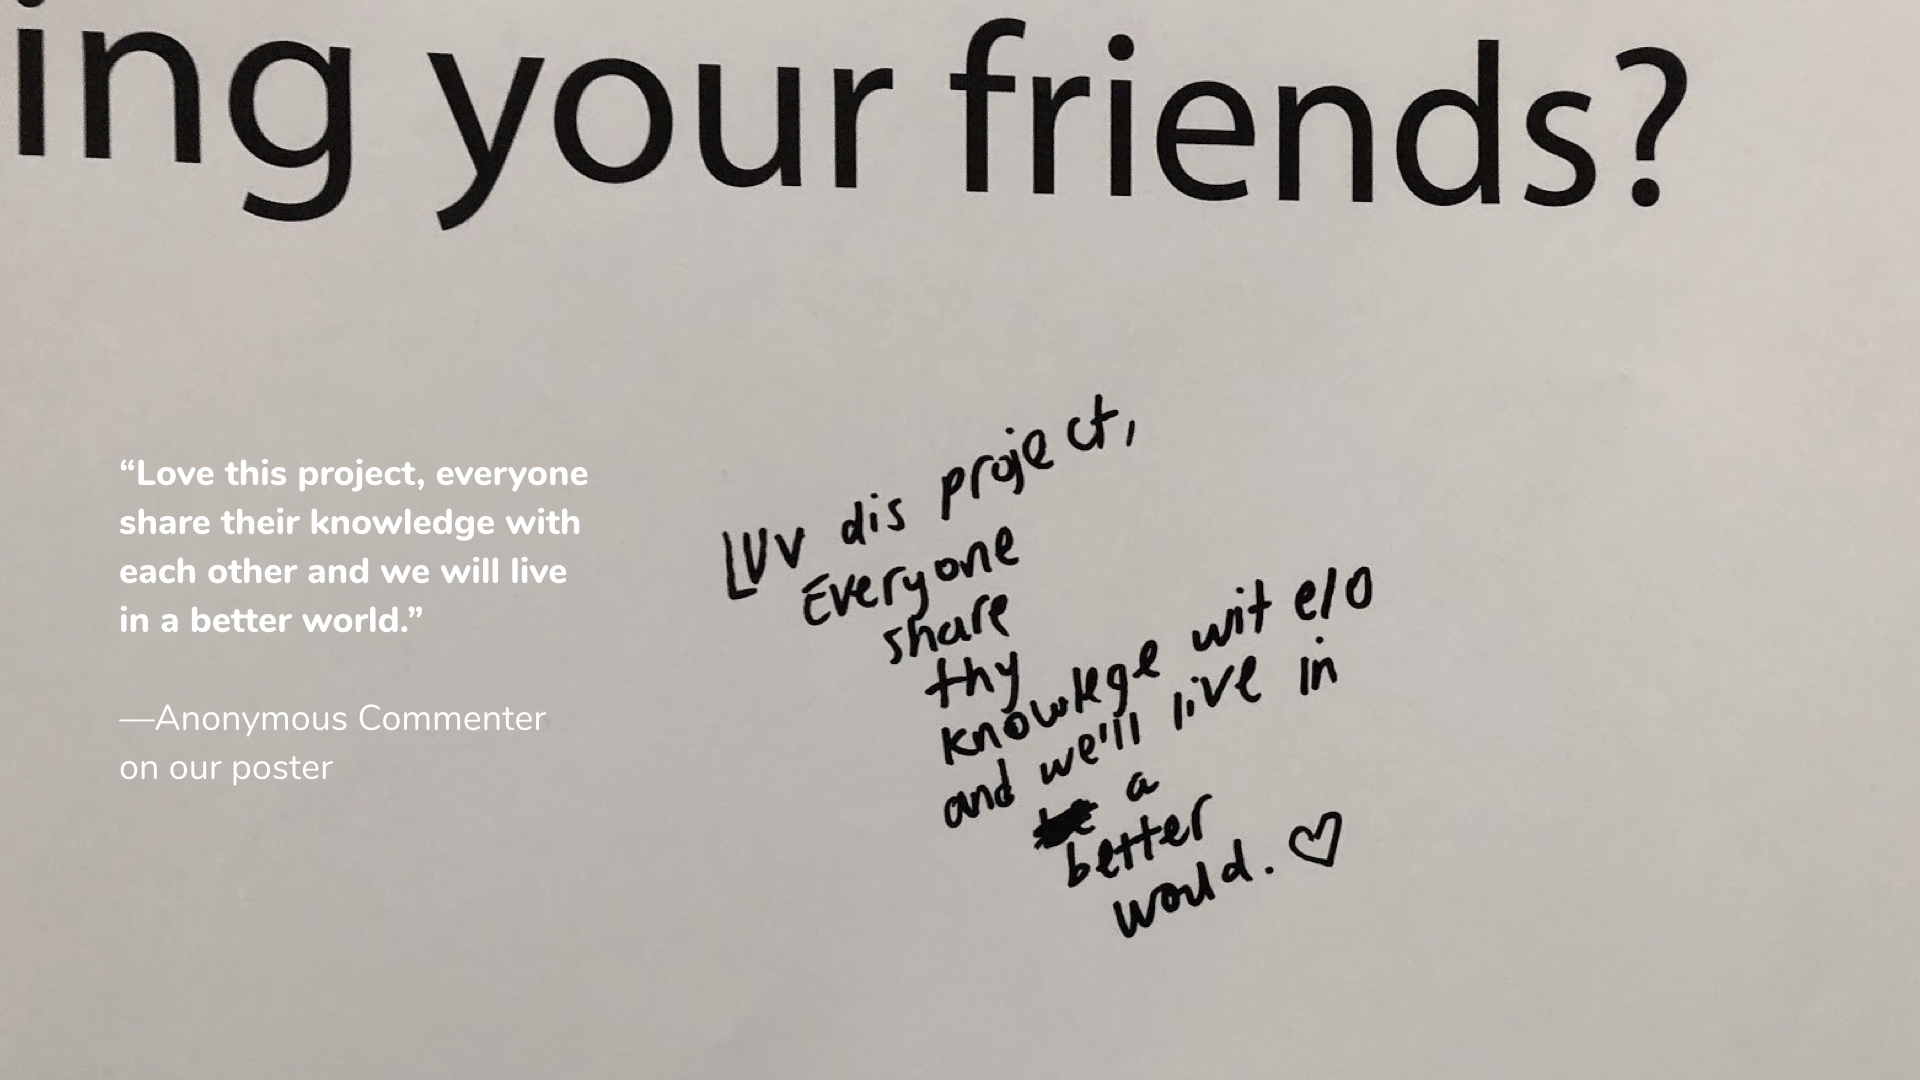 ing your friends?
“Love this project, everyone
share their knowledge with
each other and we will live
in a better world.”
—Anonymous Commenter
on our poster
LUV dis project,
Everyone
share
thy
knowlege wit e/o
and we'll live in
a
better
world. ♡